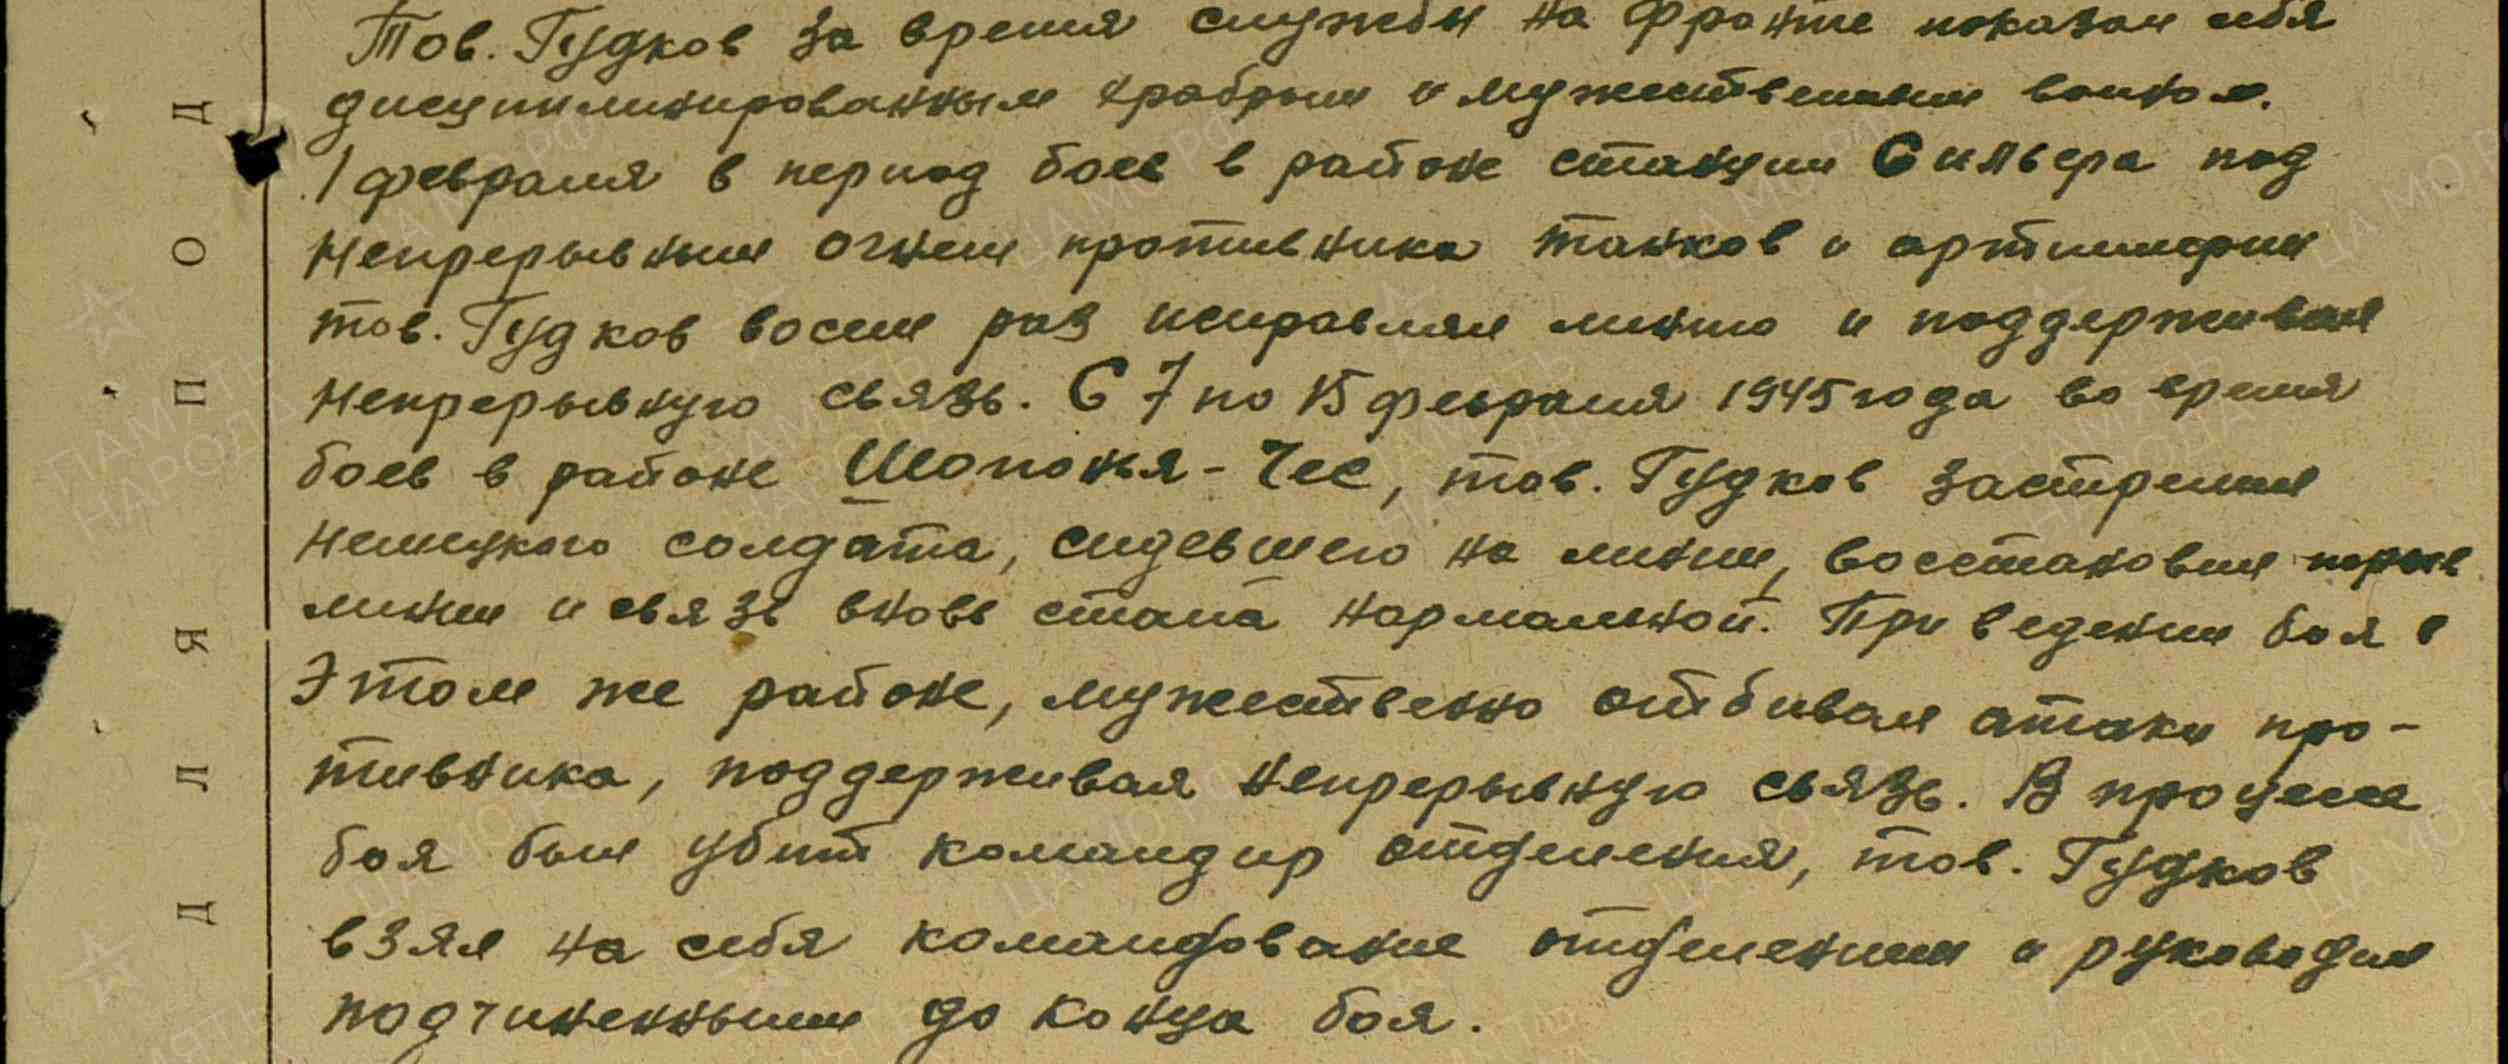 Тов. Гудков за время службы на фронте показал себя
дисциплинированным храбрым и мужественным воином.
1 февраля в период боев в районе станции Сильвера под
непрерывным огнем противника танков и артиллерии
тов. Гудков восем раз исправлял линию и поддерживал
непрерывную связь. С 7 по 15 февраля 1945 года во время
боев в районе Шопонья-Чес, тов. Гудков застрелил
немецкого солдата, сидевшего на линии, восстановил порыв
линии и связь вновь стала нормальной. При ведении боя в
этом же районе, мужественно отбивал атаки про-
тивника, поддерживая непрерывную связь. В процессе
боя был убит командир отделения, тов. Гудков
взял на себя командование отделением и руководил
подчиненными до конца боя.
Д Л Я П О Д